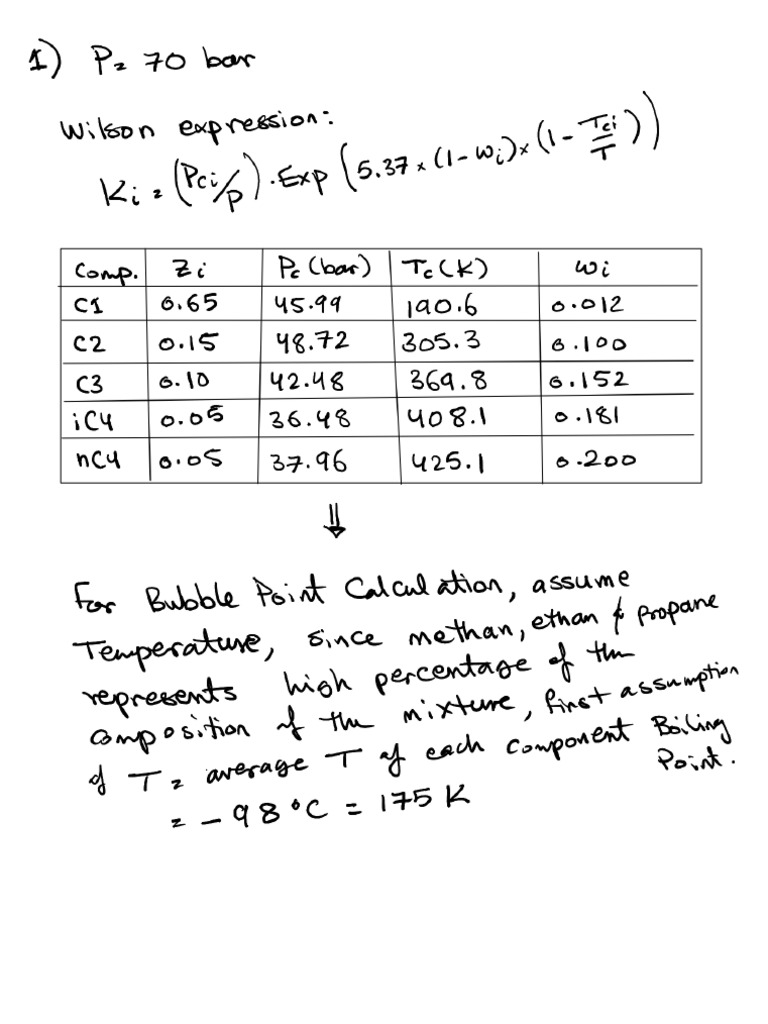 1) P = 70 bar
Wilson expression:
Ki = (Pci/P) . Exp (5.37 x (1 - wi) x (1 - Tci/T))
Comp. Zi Pc (bar) Tc (K) wi
C1 0.65 45.99 190.6 0.012
C2 0.15 48.72 305.3 0.100
C3 0.10 42.48 369.8 0.152
iC4 0.05 36.48 408.1 0.181
nC4 0.05 37.96 425.1 0.200
⇓
For Bubble Point Calculation, assume
Temperature, since methan, ethan & propane
represents high percentage of the
composition of the mixture, first assumption
of T = average T of each component Boiling
Point.
= -98 °C = 175 K